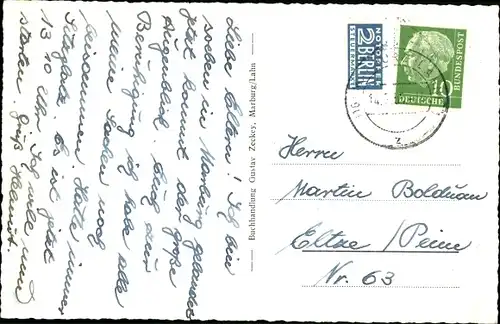 Liebe Eltern! Ich bin
soeben in Marburg gelandet
jetzt kommt der große
Augenblick. Aug zur
Beruhigung ich habe alle
meine Sachen noch
beisammen. Hatte immer
Sitzplatz. Es ist jetzt
13.10 Uhr. Ich will nun
starten. Gruß Helmut.
Buchhandlung Gustav Zeckey, Marburg/Lahn
NOTOPFER
2 BERLIN
STEUERMARKE
DEUTSCHE
BUNDESPOST
10
z
Herrn
Martin Bolduan
Eltze/Peine
Nr. 63